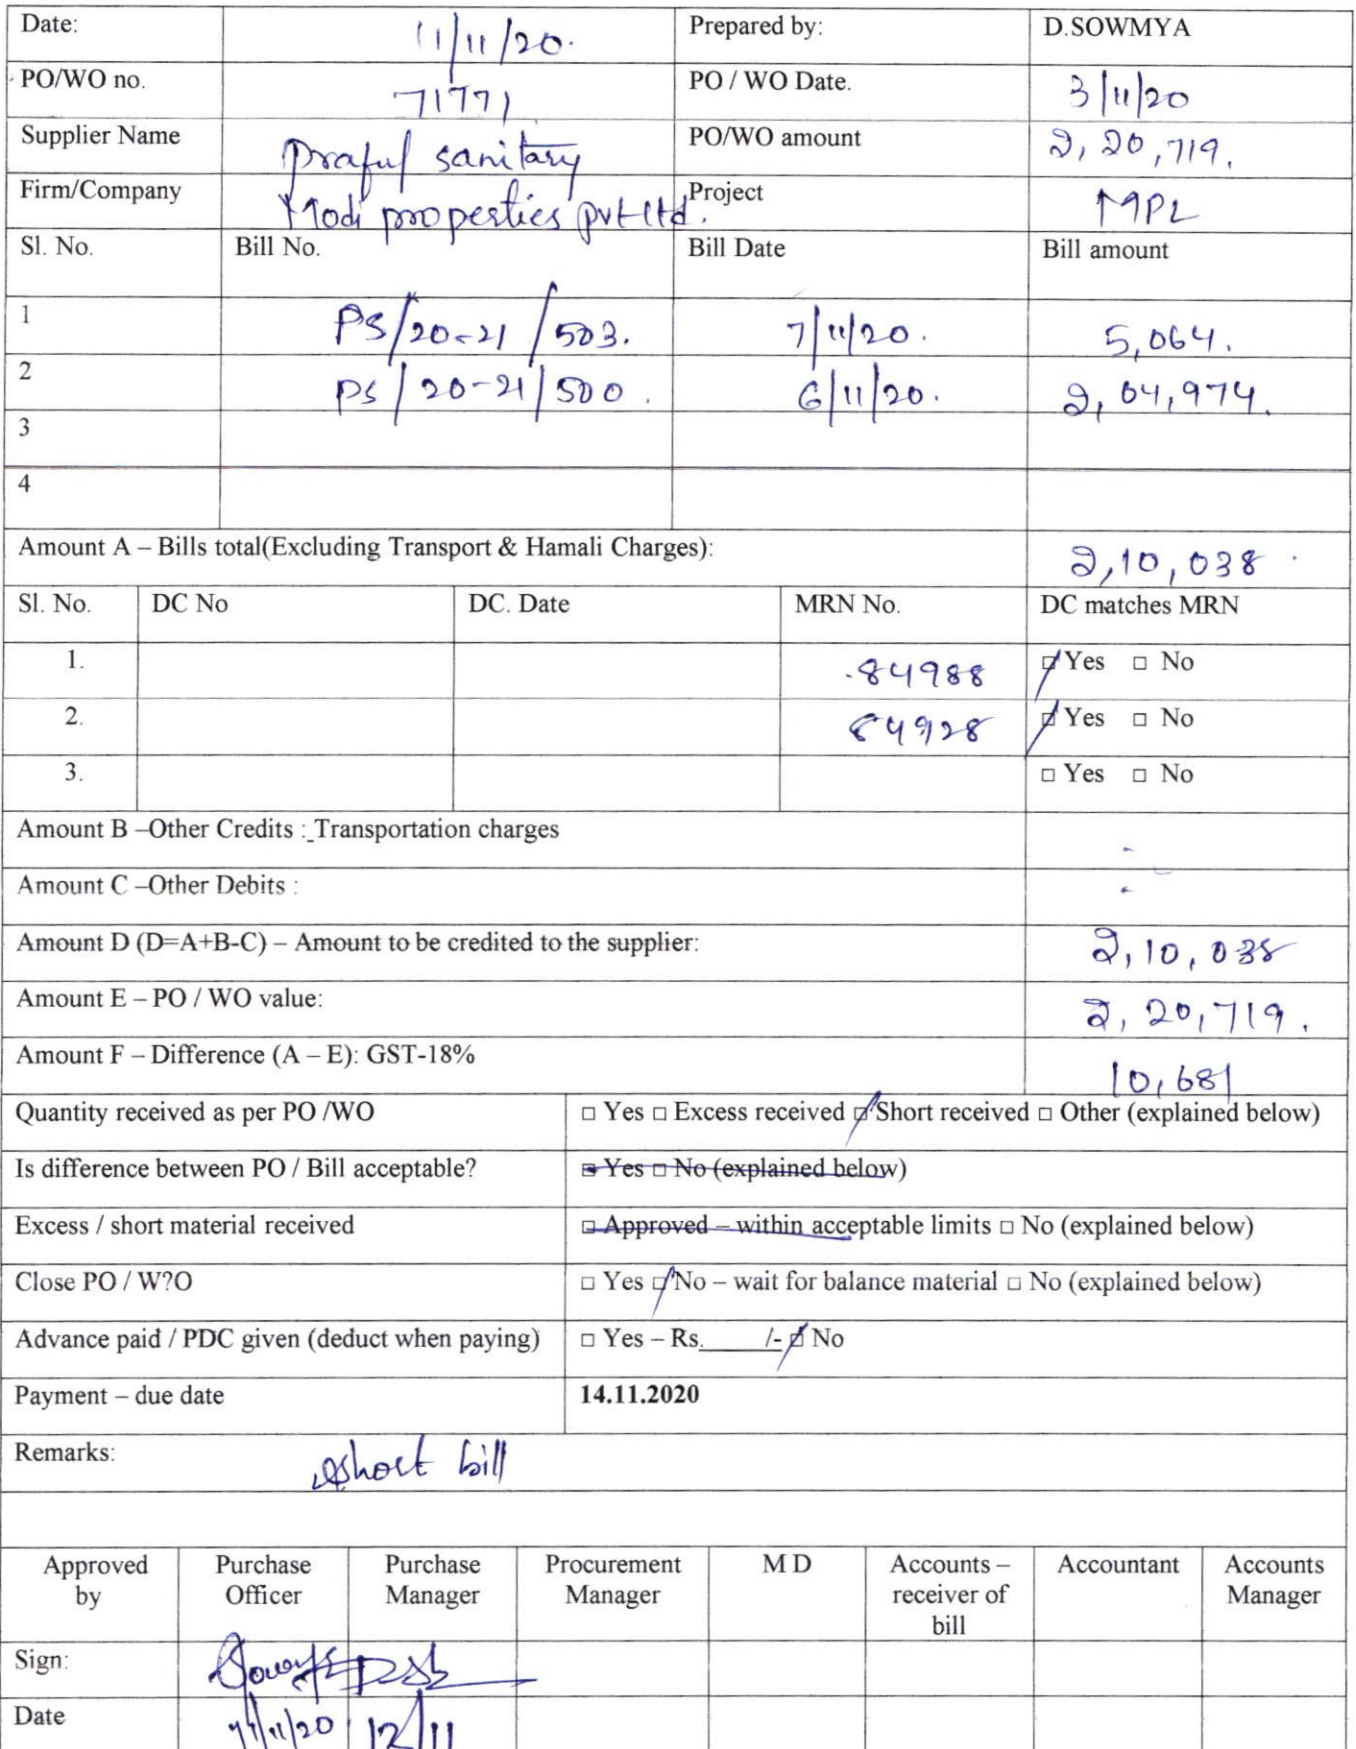 Date: 11/11/20. Prepared by: D.SOWMYA
PO/WO no. 71771 PO / WO Date. 3/11/20
Supplier Name Praful sanitary PO/WO amount 2,20,719.
Firm/Company Modi properties pvt ltd. Project MPL
Sl. No. Bill No. Bill Date Bill amount
1 PS/20-21/503. 7/11/20. 5,064.
2 PS/20-21/500. 6/11/20. 2,04,974.
3
4
Amount A – Bills total(Excluding Transport & Hamali Charges): 2,10,038
Sl. No. DC No DC. Date MRN No. DC matches MRN
1. 84988 ☑ Yes □ No
2. 84928 ☑ Yes □ No
3. □ Yes □ No
Amount B –Other Credits : Transportation charges -
Amount C –Other Debits : -
Amount D (D=A+B-C) – Amount to be credited to the supplier: 2,10,038
Amount E – PO / WO value: 2,20,719.
Amount F – Difference (A – E): GST-18% 10,681
Quantity received as per PO /WO □ Yes □ Excess received ☑ Short received □ Other (explained below)
Is difference between PO / Bill acceptable? □ Yes □ No (explained below)
Excess / short material received □ Approved – within acceptable limits □ No (explained below)
Close PO / W?O □ Yes ☑ No – wait for balance material □ No (explained below)
Advance paid / PDC given (deduct when paying) □ Yes – Rs.______/- ☑ No
Payment – due date 14.11.2020
Remarks: short bill
Approved by Purchase Officer Purchase Manager Procurement Manager M D Accounts – receiver of bill Accountant Accounts Manager
Sign:
Date 11/11/20 12/11